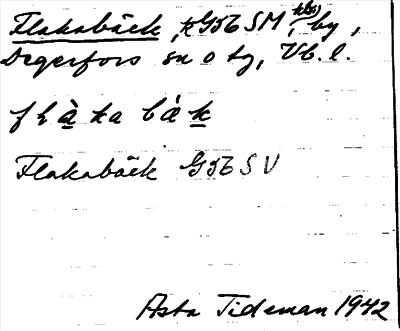 Flakabäck, G56 SM, by,
Degerfors sn o tg, Vb. l.
flàka bä́k
Flakabäck G56 SV
Asta Tideman 1942